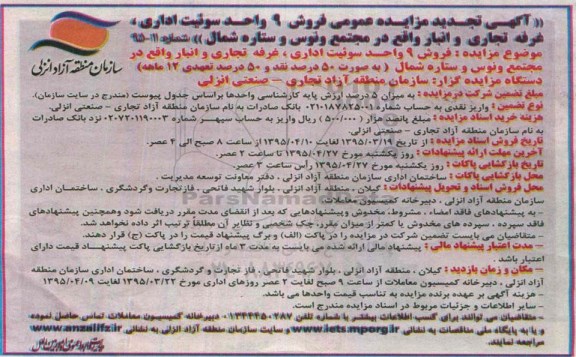 (( آگهی تجدید مزایده عمومی فروش ۹ واحد سوئیت اداری ،
غرفه تجاری و انبار واقع در مجتمع ونوس و ستاره شمال )) شماره ۱۱-۹۵
موضوع مزایده : فروش ۹ واحد سوئیت اداری ، غرفه تجاری و انبار واقع در
مجتمع ونوس و ستاره شمال ( به صورت ۵۰ درصد نقد و ۵۰ درصد تعهدی ۱۲ ماهه)
دستگاه مزایده گزار: سازمان منطقه آزاد تجاری – صنعتی انزلی
سازمان منطقه آزاد انزلی
مبلغ تضمین شرکت درمزایده : به میزان ۵ درصد ارزش پایه کارشناسی واحدها براساس جدول پیوست (مندرج در سایت سازمان).
نوع تضمین : واریز نقدی به حساب شماره ۰۲۱۰۱۸۷۸۲۵۰۰۱ بانک صادرات به نام سازمان منطقه آزاد تجاری – صنعتی انزلی.
هزینه خرید اسناد مزایده : مبلغ پانصد هزار (۵۰۰/۰۰۰ ) ریال واریز به حساب سپهر شماره ۰۲۰۷۲۰۱۱۹۰۰۰۳ نزد بانک صادرات
به نام سازمان منطقه آزاد تجاری – صنعتی انزلی.
تاریخ فروش اسناد مزایده : از تاریخ ۱۳۹۵/۰۳/۱۹ لغایت ۱۳۹۵/۰۴/۱۰ از ساعت ۸ صبح الی ۲ عصر.
آخرین مهلت ارائه پیشنهادات : روز یکشنبه مورخ ۱۳۹۵/۰۴/۲۷ تا ساعت ۲ عصر.
تاریخ بازگشایی پاکات : روز یکشنبه مورخ ۱۳۹۵/۰۴/۲۷ رأس ساعت ۳ عصر.
محل بازگشایی پاکات : ساختمان اداری سازمان منطقه آزاد انزلی ، دفتر معاونت توسعه مدیریت .
محل فروش اسناد و تحویل پیشنهادات : گیلان ، منطقه آزاد انزلی ، بلوار شهید فاتحی ، فاز تجارت وگردشگری ، ساختمان اداری
سازمان منطقه آزاد انزلی ، دبیرخانه کمیسیون معاملات.
– به پیشنهادهای فاقد امضاء ، مشروط، مخدوش وپیشنهادهایی که بعد از انقضای مدت مقرر دریافت شود وهمچنین پیشنهادهای
فاقد سپرده ، سپرده های مخدوش یا کمتر از میزان مقرر، چک شخصی و نظایر آن مطلقاً ترتیب اثر داده نخواهد شد.
– متقاضیان می بایست تضمین شرکت در مزایده را در پاکت (الف) و برگ پیشنهاد قیمت را در پاکت (ج) قرار دهند.
– مدت اعتبار پیشنهاد مالی : پیشنهاد مالی ارائه شده می بایست به مدت ۳ ماه ازتاریخ بازگشایی پاکت پیشنهاد قیمت دارای
اعتبار باشد .
– مکان و زمان بازدید : گیلان ، منطقه آزاد انزلی ، بلوار شهید فاتحی ، فاز تجارت و گردشگری ، ساختمان اداری سازمان منطقه
آزاد انزلی ، دبیرخانه کمیسیون معاملات از ساعت ۹ صبح لغایت ۲ عصر روزهای اداری مورخ ۱۳۹۵/۰۳/۲۲ لغایت ۱۳۹۵/۰۴/۰۹
– هزینه آگهی بر عهده برنده مزایده به تناسب قیمت واحدها می باشد.
– سایر اطلاعات و جزئیات مربوط در اسناد مزایده مندرج است.
– متقاضیان می توانند برای کسب اطلاعات بیشتر با شماره تلفن ۰۱۳۴۴۴۵۰۴۸۷ – دبیرخانه کمیسیون معاملات تماس حاصل نموده
و یا به پایگاه ملی مناقصات به نشانی www.iets.mporg.ir و سایت سازمان منطقه آزاد انزلی به نشانی www.anzalifz.ir
مراجعه نمایند.